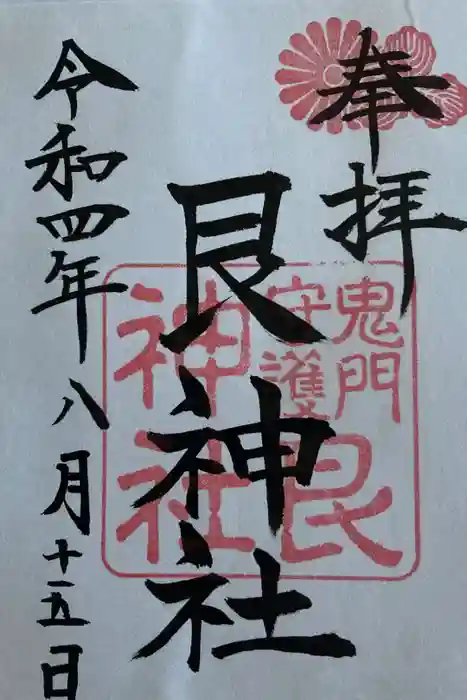 奉拝
艮神社
令和四年八月十五日
鬼門
守護
艮
神社